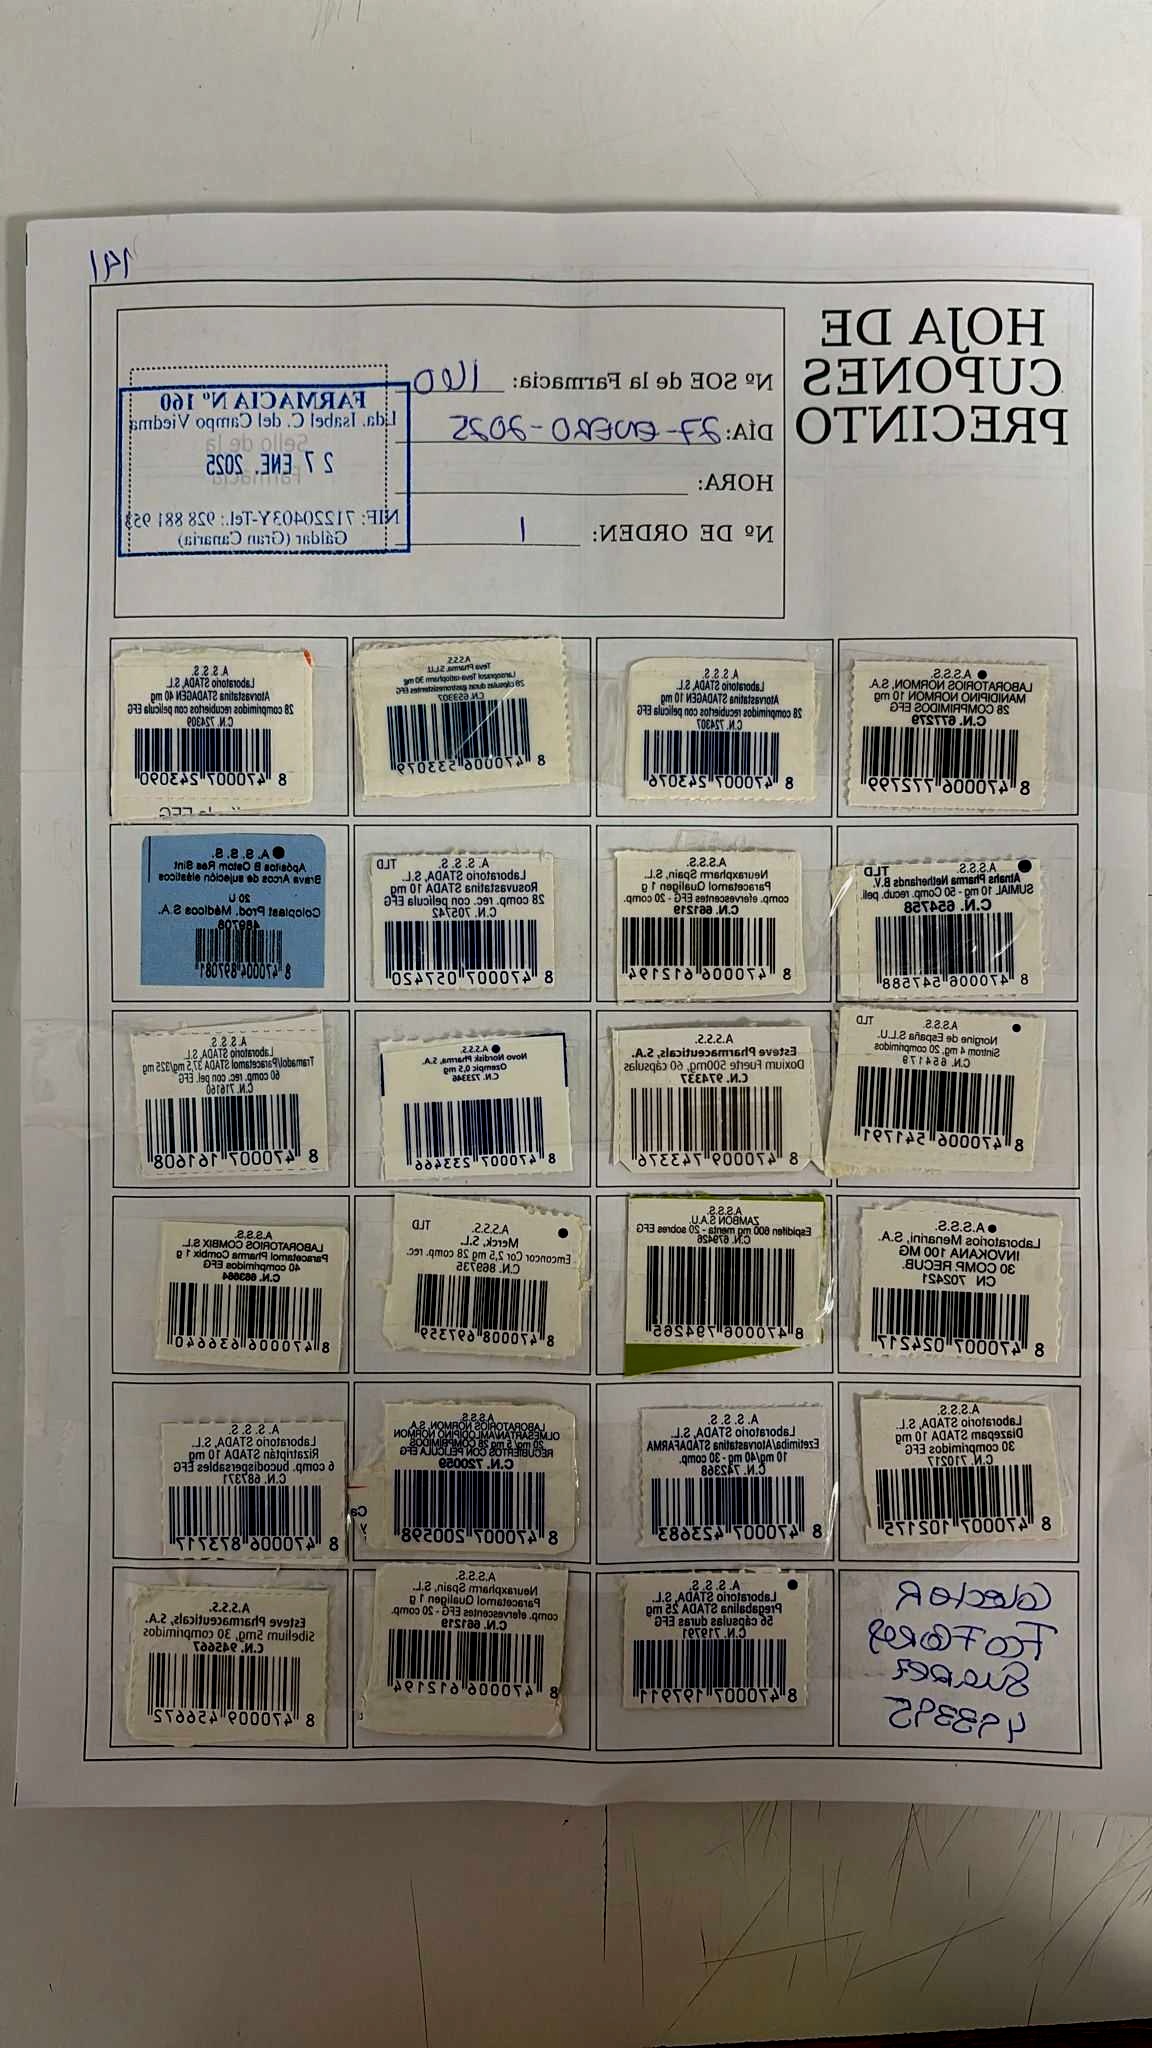 HOJA DE
CUPONES
PRECINTO
Nº SOE de la Farmacia: 160
DÍA: 27-ENERO-2025
HORA:
Nº DE ORDEN: 1
Sello de la
Farmacia
FARMACIA Nº 160
Lda. Isabel C. del Campo Viedma
27 ENE. 2025
NIF: 71220403Y-Tel.: 928 881 953
Gáldar (Gran Canaria)
A.S.S.S.
LABORATORIOS NORMON, S.A.
MANIDIPINO NORMON 10 mg
28 COMPRIMIDOS EFG
C.N. 677279
8 470006 772799
A.S.S.S.
Laboratorio STADA, S.L.
Atorvastatina STADAGEN 10 mg
28 comprimidos recubiertos con película EFG
C.N. 724307
8 470007 243076
A.S.S.S.
Teva Pharma, S.L.U.
Lansoprazol Teva-ratiopharm 30 mg
28 cápsulas duras gastrorresistentes EFG
C.N. 653307
8 470006 533079
A.S.S.S.
Laboratorio STADA, S.L.
Atorvastatina STADAGEN 40 mg
28 comprimidos recubiertos con película EFG
C.N. 724309
8 470007 243090
A.S.S.S. TLD
Atnahs Pharma Netherlands B.V.
SUMIAL 10 mg - 50 Comp. recub. peli.
C.N. 654758
8 470006 547588
A.S.S.S.
Neuraxpharm Spain, S.L.
Paracetamol Qualigen 1 g
comp. efervescentes EFG - 20 comp.
C.N. 661219
8 470006 612194
A.S.S.S. TLD
Laboratorio STADA, S.L.
Rosuvastatina STADA 10 mg
28 comp. rec. con película EFG
C.N. 705742
8 470007 057420
A.S.S.S.
Apósitos B Ostom Res Sint
Brava Arcos de sujeción elásticos
20 U
Coloplast Prod. Médicos S.A.
489708
8 470004 897081
A.S.S.S. TLD
Norgine de España S.L.U.
Sintrom 4 mg, 20 comprimidos
C.N. 654179
8 470006 541791
A.S.S.S.
Esteve Pharmaceuticals, S.A.
Doxium Fuerte 500mg, 60 cápsulas
C.N. 974337
8 470009 743376
A.S.S.S.
Novo Nordisk Pharma, S.A.
Ozempic 0,5 mg
C.N. 723346
8 470007 233466
A.S.S.S.
Laboratorio STADA, S.L.
Tramadol/Paracetamol STADA 37,5 mg/325 mg
60 comp. rec. con pel. EFG
C.N. 716160
8 470007 161608
A.S.S.S.
Laboratorios Menarini, S.A.
INVOKANA 100 MG
30 COMP RECUB.
CN 702421
8 470007 024217
A.S.S.S.
ZAMBON S.A.U.
Espidifen 600 mg menta - 20 sobres EFG
C.N. 679426
8 470006 794265
A.S.S.S. TLD
Merck, S.L.
Emconcor Cor 2,5 mg 28 comp. rec.
C.N. 869735
8 470008 697359
A.S.S.S.
LABORATORIOS COMBIX S.L.
Paracetamol Pharma Combix 1 g
40 comprimidos EFG
C.N. 663664
8 470006 636640
A.S.S.S.
Laboratorio STADA, S.L.
Diazepam STADA 10 mg
30 comprimidos EFG
C.N. 710217
8 470007 102175
A.S.S.S.
Laboratorio STADA, S.L.
Ezetimiba/Atorvastatina STADAFARMA
10 mg/40 mg - 30 comp.
C.N. 742368
8 470007 423683
A.S.S.S.
LABORATORIOS NORMON, S.A.
OLMESARTAN/AMLODIPINO NORMON
20 mg/5 mg 28 COMPRIMIDOS
RECUBIERTOS CON PELICULA EFG
C.N. 720059
8 470007 200598
A.S.S.S.
Laboratorio STADA, S.L.
Rizatriptán STADA 10 mg
6 comp. bucodispersables EFG
C.N. 687371
8 470006 873717
Colector
Fco Flores
Suarez
A.S.S.S.
Laboratorio STADA, S.L.
Pregabalina STADA 25 mg
56 cápsulas duras EFG
C.N. 719791
8 470007 197911
A.S.S.S.
Neuraxpharm Spain, S.L.
Paracetamol Qualigen 1 g
comp. efervescentes EFG - 20 comp.
C.N. 661219
8 470006 612194
A.S.S.S.
Esteve Pharmaceuticals, S.A.
Sibelium 5mg, 30 comprimidos
C.N. 945667
8 470009 456672